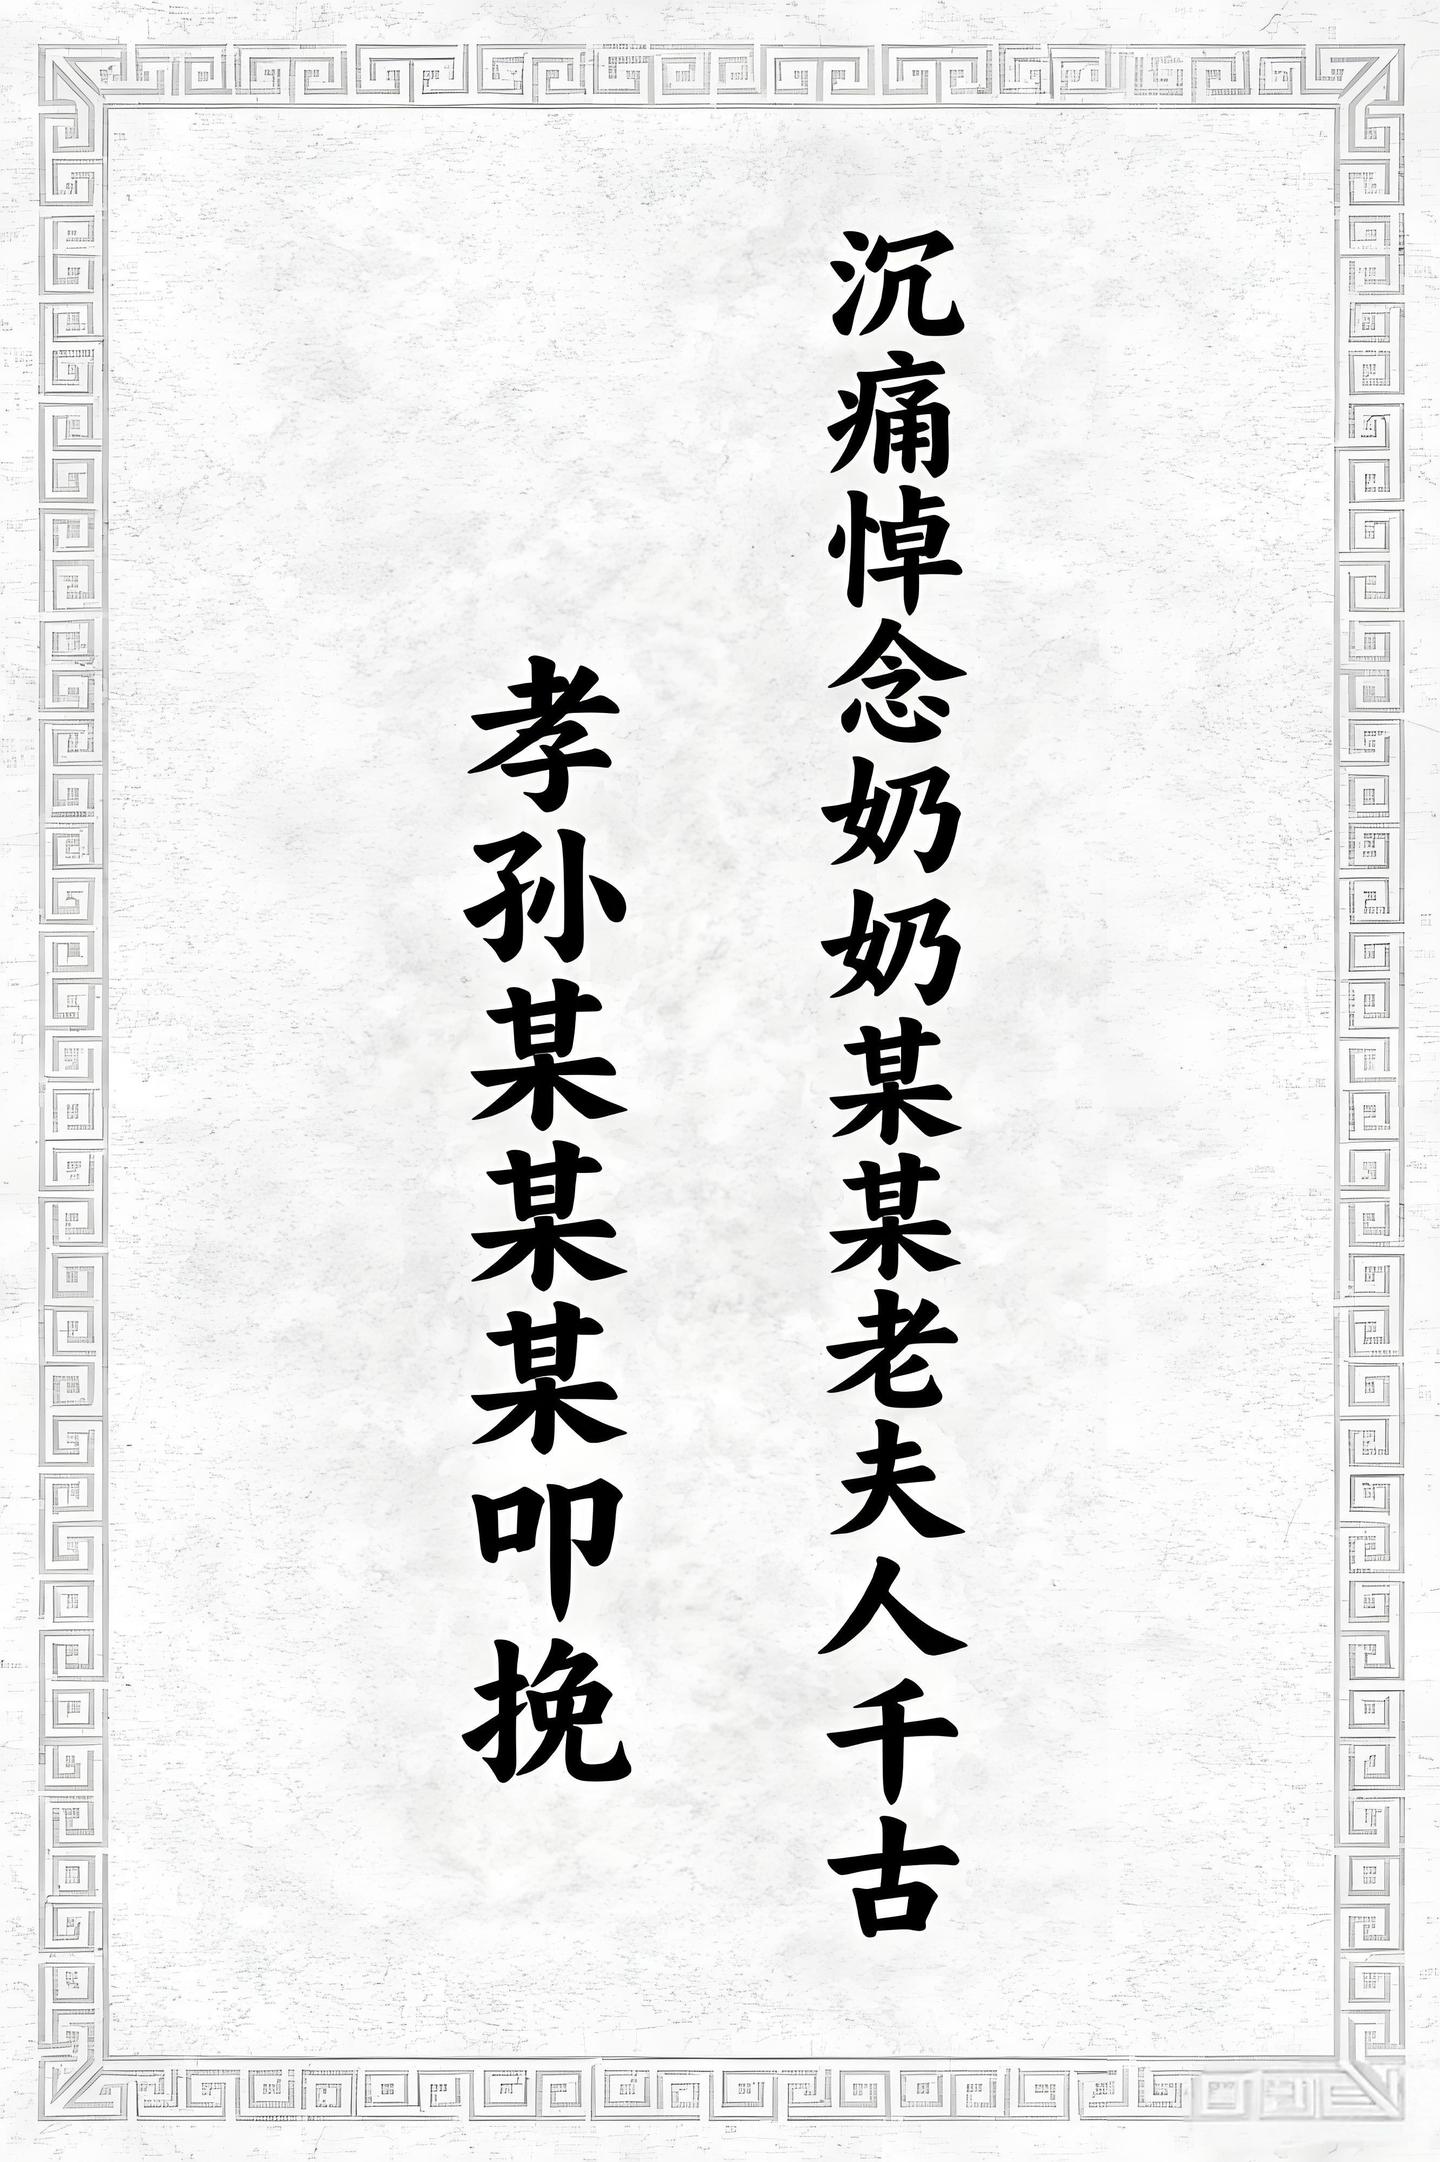 沉痛悼念奶奶某某老夫人千古
孝孙某某某叩挽